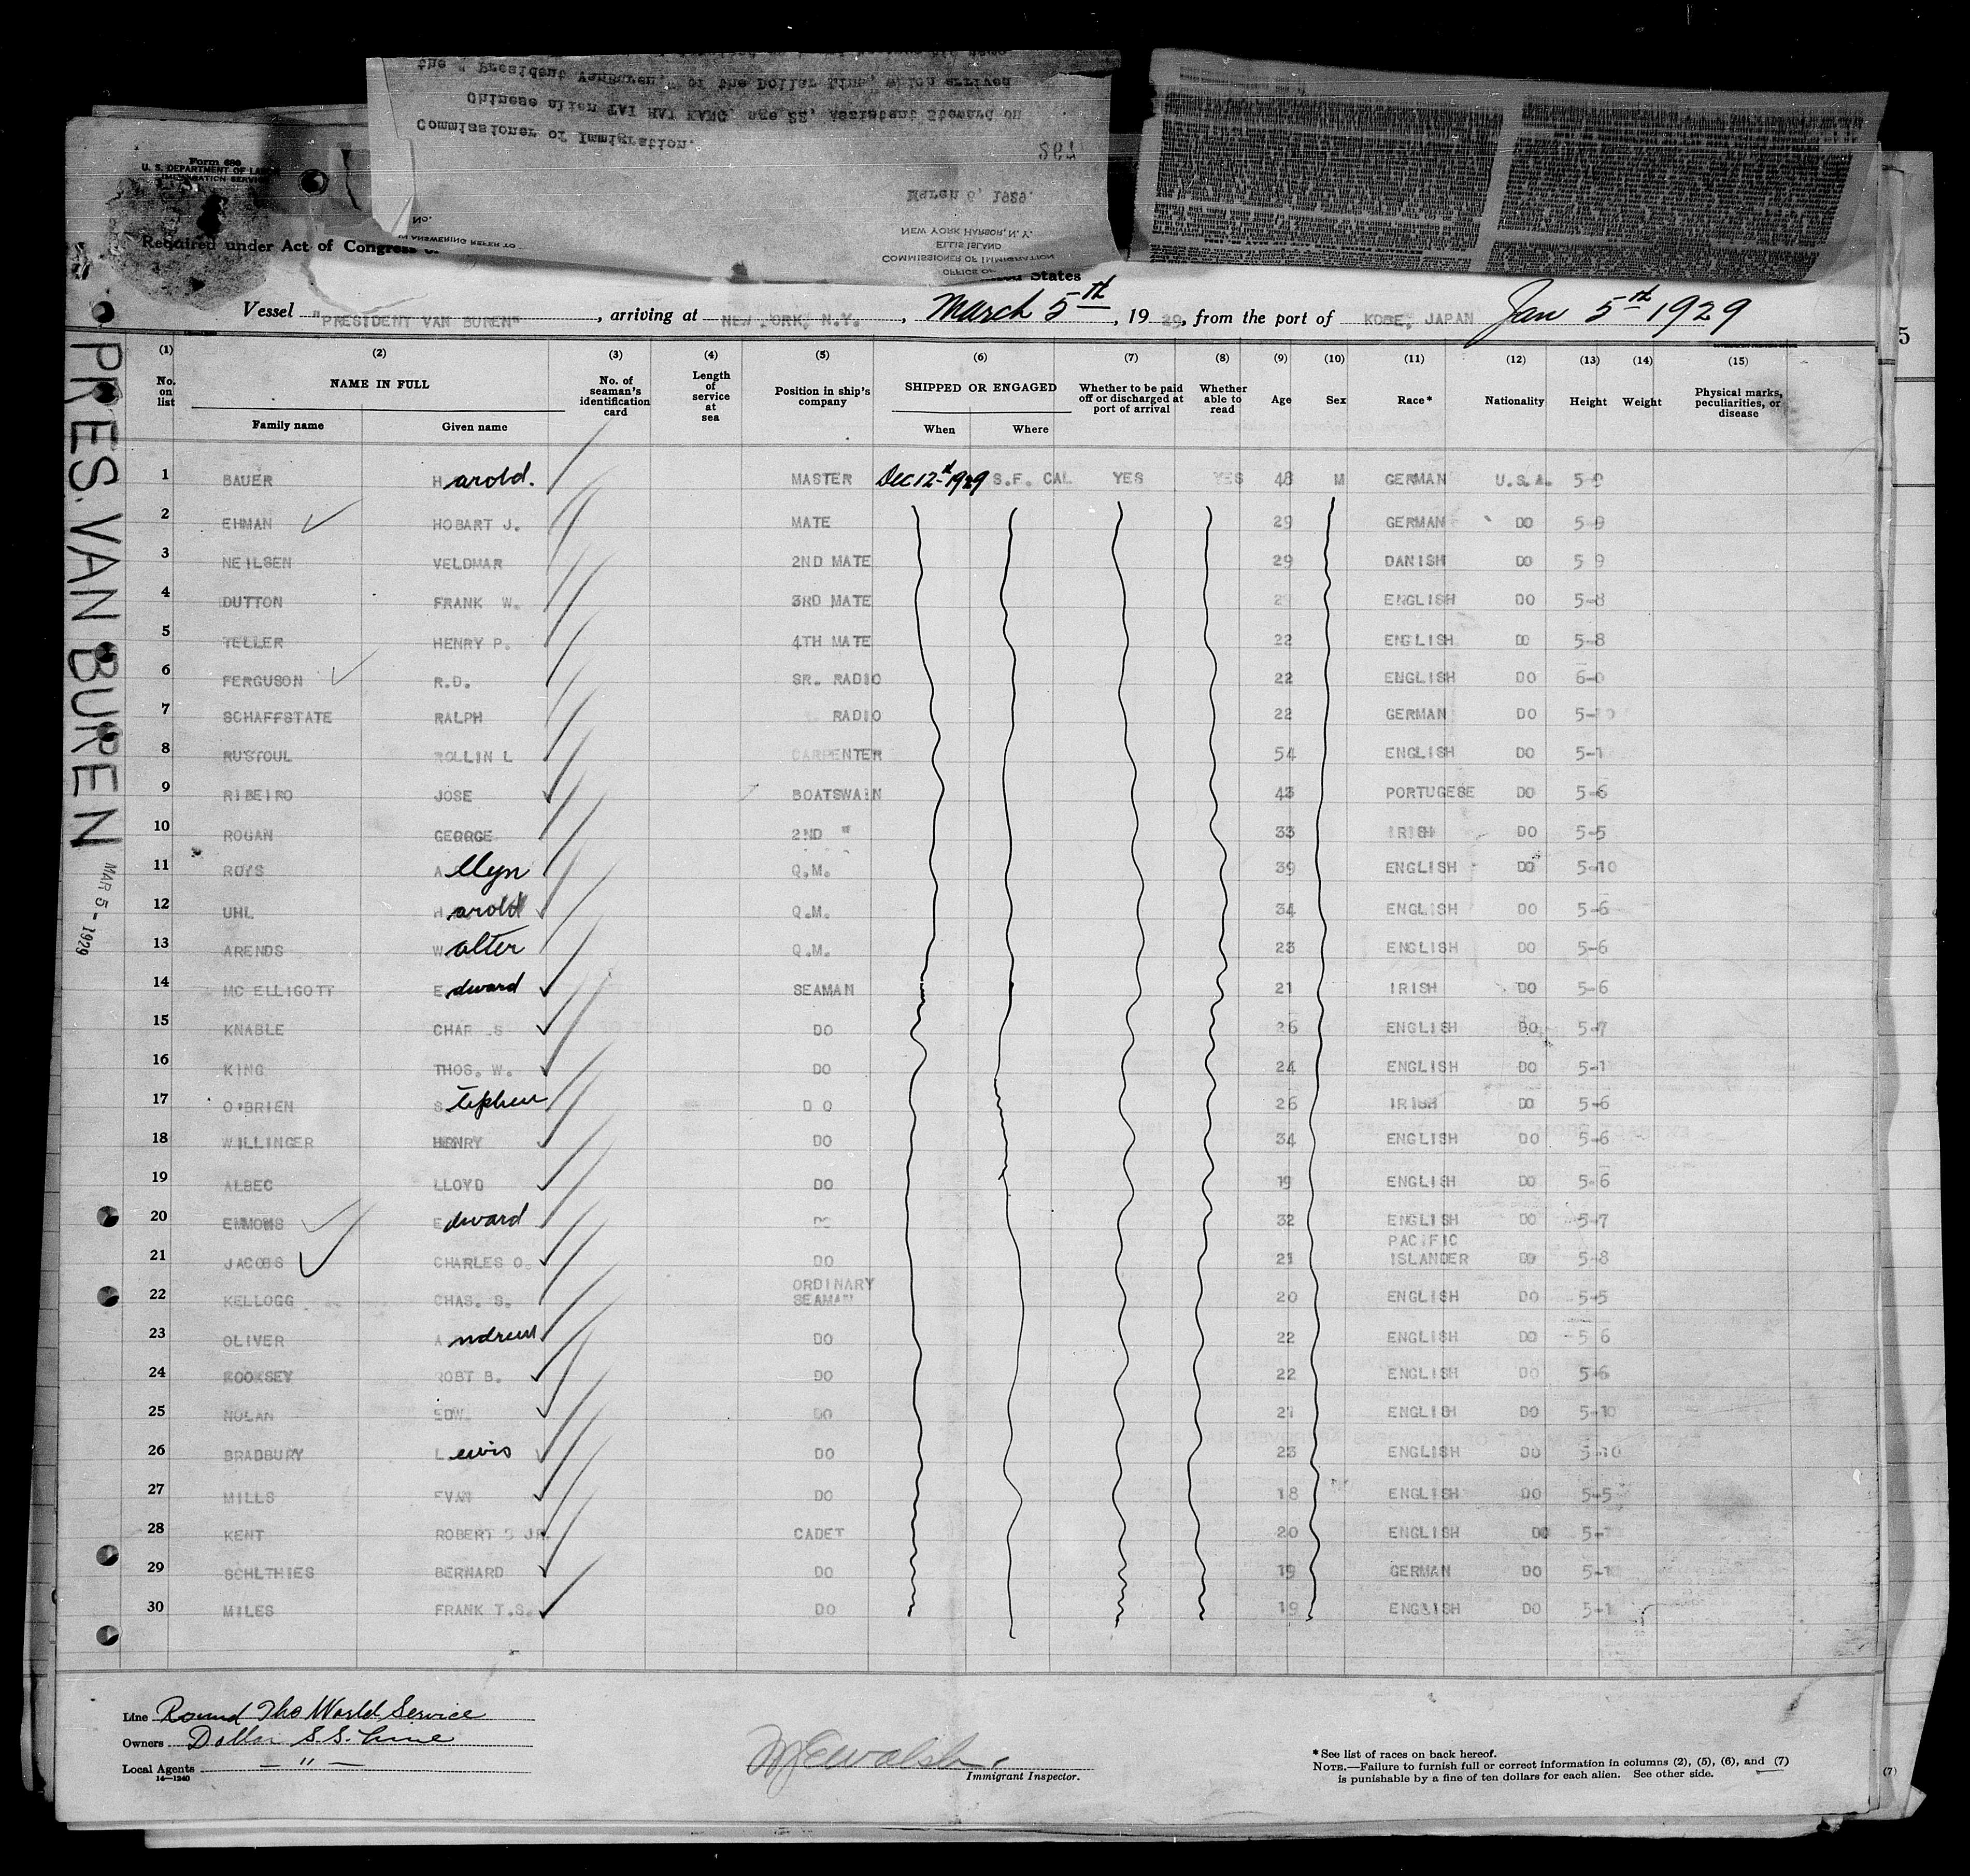 the " President VanBuren," of the Dollar Line, which arrived
Chinese alien TAI HAI KANG, age 22, Assistant Steward on
Commissioner of Immigration.
March 6, 1929.
No.
IN ANSWERING REFER TO
NEW YORK HARBOR, N. Y.
ELLIS ISLAND
COMMISSIONER OF IMMIGRATION
OFFICE OF
Form 680
U. S. DEPARTMENT OF LABOR
IMMIGRATION SERVICE
Required under Act of Congress of
States
Vessel "PRESIDENT VAN BUREN", arriving at NEW YORK, N.Y., March 5th, 1929, from the port of KOBE, JAPAN Jan 5th 1929
5
PRES. VAN BUREN
MAR 5 - 1929
(1) (2) (3) (4) (5) (6) (7) (8) (9) (10) (11) (12) (13) (14) (15)
No. on list NAME IN FULL No. of seaman's identification card Length of service at sea Position in ship's company SHIPPED OR ENGAGED Whether to be paid off or discharged at port of arrival Whether able to read Age Sex Race* Nationality Height Weight Physical marks, peculiarities, or disease
Family name Given name When Where
1 BAUER Harold. MASTER Dec 12th-1929 S.F. CAL YES YES 48 M GERMAN U.S.A. 5-9
2 EHMAN HOBART J. MATE 29 GERMAN DO 5-9
3 NEILSEN VELDMAR 2ND MATE 29 DANISH DO 5 9
4 DUTTON FRANK W. 3RD MATE 29 ENGLISH DO 5-8
5 TELLER HENRY P. 4TH MATE 22 ENGLISH DO 5-8
6 FERGUSON R.D. SR. RADIO 22 ENGLISH DO 6-0
7 SCHAFFSTATE RALPH RADIO 22 GERMAN DO 5-10
8 RUSTOUL ROLLIN L CARPENTER 54 ENGLISH DO 5-1
9 RIBEIRO JOSE BOATSWAIN 43 PORTUGESE DO 5-6
10 ROGAN GEORGE 2ND " 33 IRISH DO 5-5
11 ROYS Allyn Q.M. 39 ENGLISH DO 5-10
12 UHL Harold Q.M. 34 ENGLISH DO 5-6
13 ARENDS Walter Q.M. 23 ENGLISH DO 5-6
14 MC ELLIGOTT Edward SEAMAN 21 IRISH DO 5-6
15 KNABLE CHARLS DO 26 ENGLISH DO 5-7
16 KING THOS. W. DO 24 ENGLISH DO 5-1
17 O'BRIEN Stephen D O 26 IRISH DO 5-6
18 WILLINGER HENRY DO 34 ENGLISH DO 5-6
19 ALBEC LLOYD DO 19 ENGLISH DO 5-6
20 EMMONS Edward DO 32 ENGLISH DO 5-7
21 JACOBS CHARLES O. DO 21 PACIFIC ISLANDER DO 5-8
22 KELLOGG CHAS. S. ORDINARY SEAMAN 20 ENGLISH DO 5-5
23 OLIVER Andrew DO 22 ENGLISH DO 5 6
24 ROOKSEY ROBT B. DO 22 ENGLISH DO 5-6
25 NOLAN EDW. DO 21 ENGLISH DO 5-10
26 BRADBURY Lewis DO 23 ENGLISH DO 5-10
27 MILLS EVAN DO 18 ENGLISH DO 5-5
28 KENT ROBERT S JR. CADET 20 ENGLISH DO 5-
29 SCHLTHIES BERNARD DO 19 GERMAN DO 5-1
30 MILES FRANK T.S. DO 19 ENGLISH DO 5-1
Line Round The World Service
Owners Dollar S.S. Line
Local Agents — " —
14—1240
Immigrant Inspector.
* See list of races on back hereof.
NOTE.—Failure to furnish full or correct information in columns (2), (5), (6), and (7)
is punishable by a fine of ten dollars for each alien. See other side.
(7)